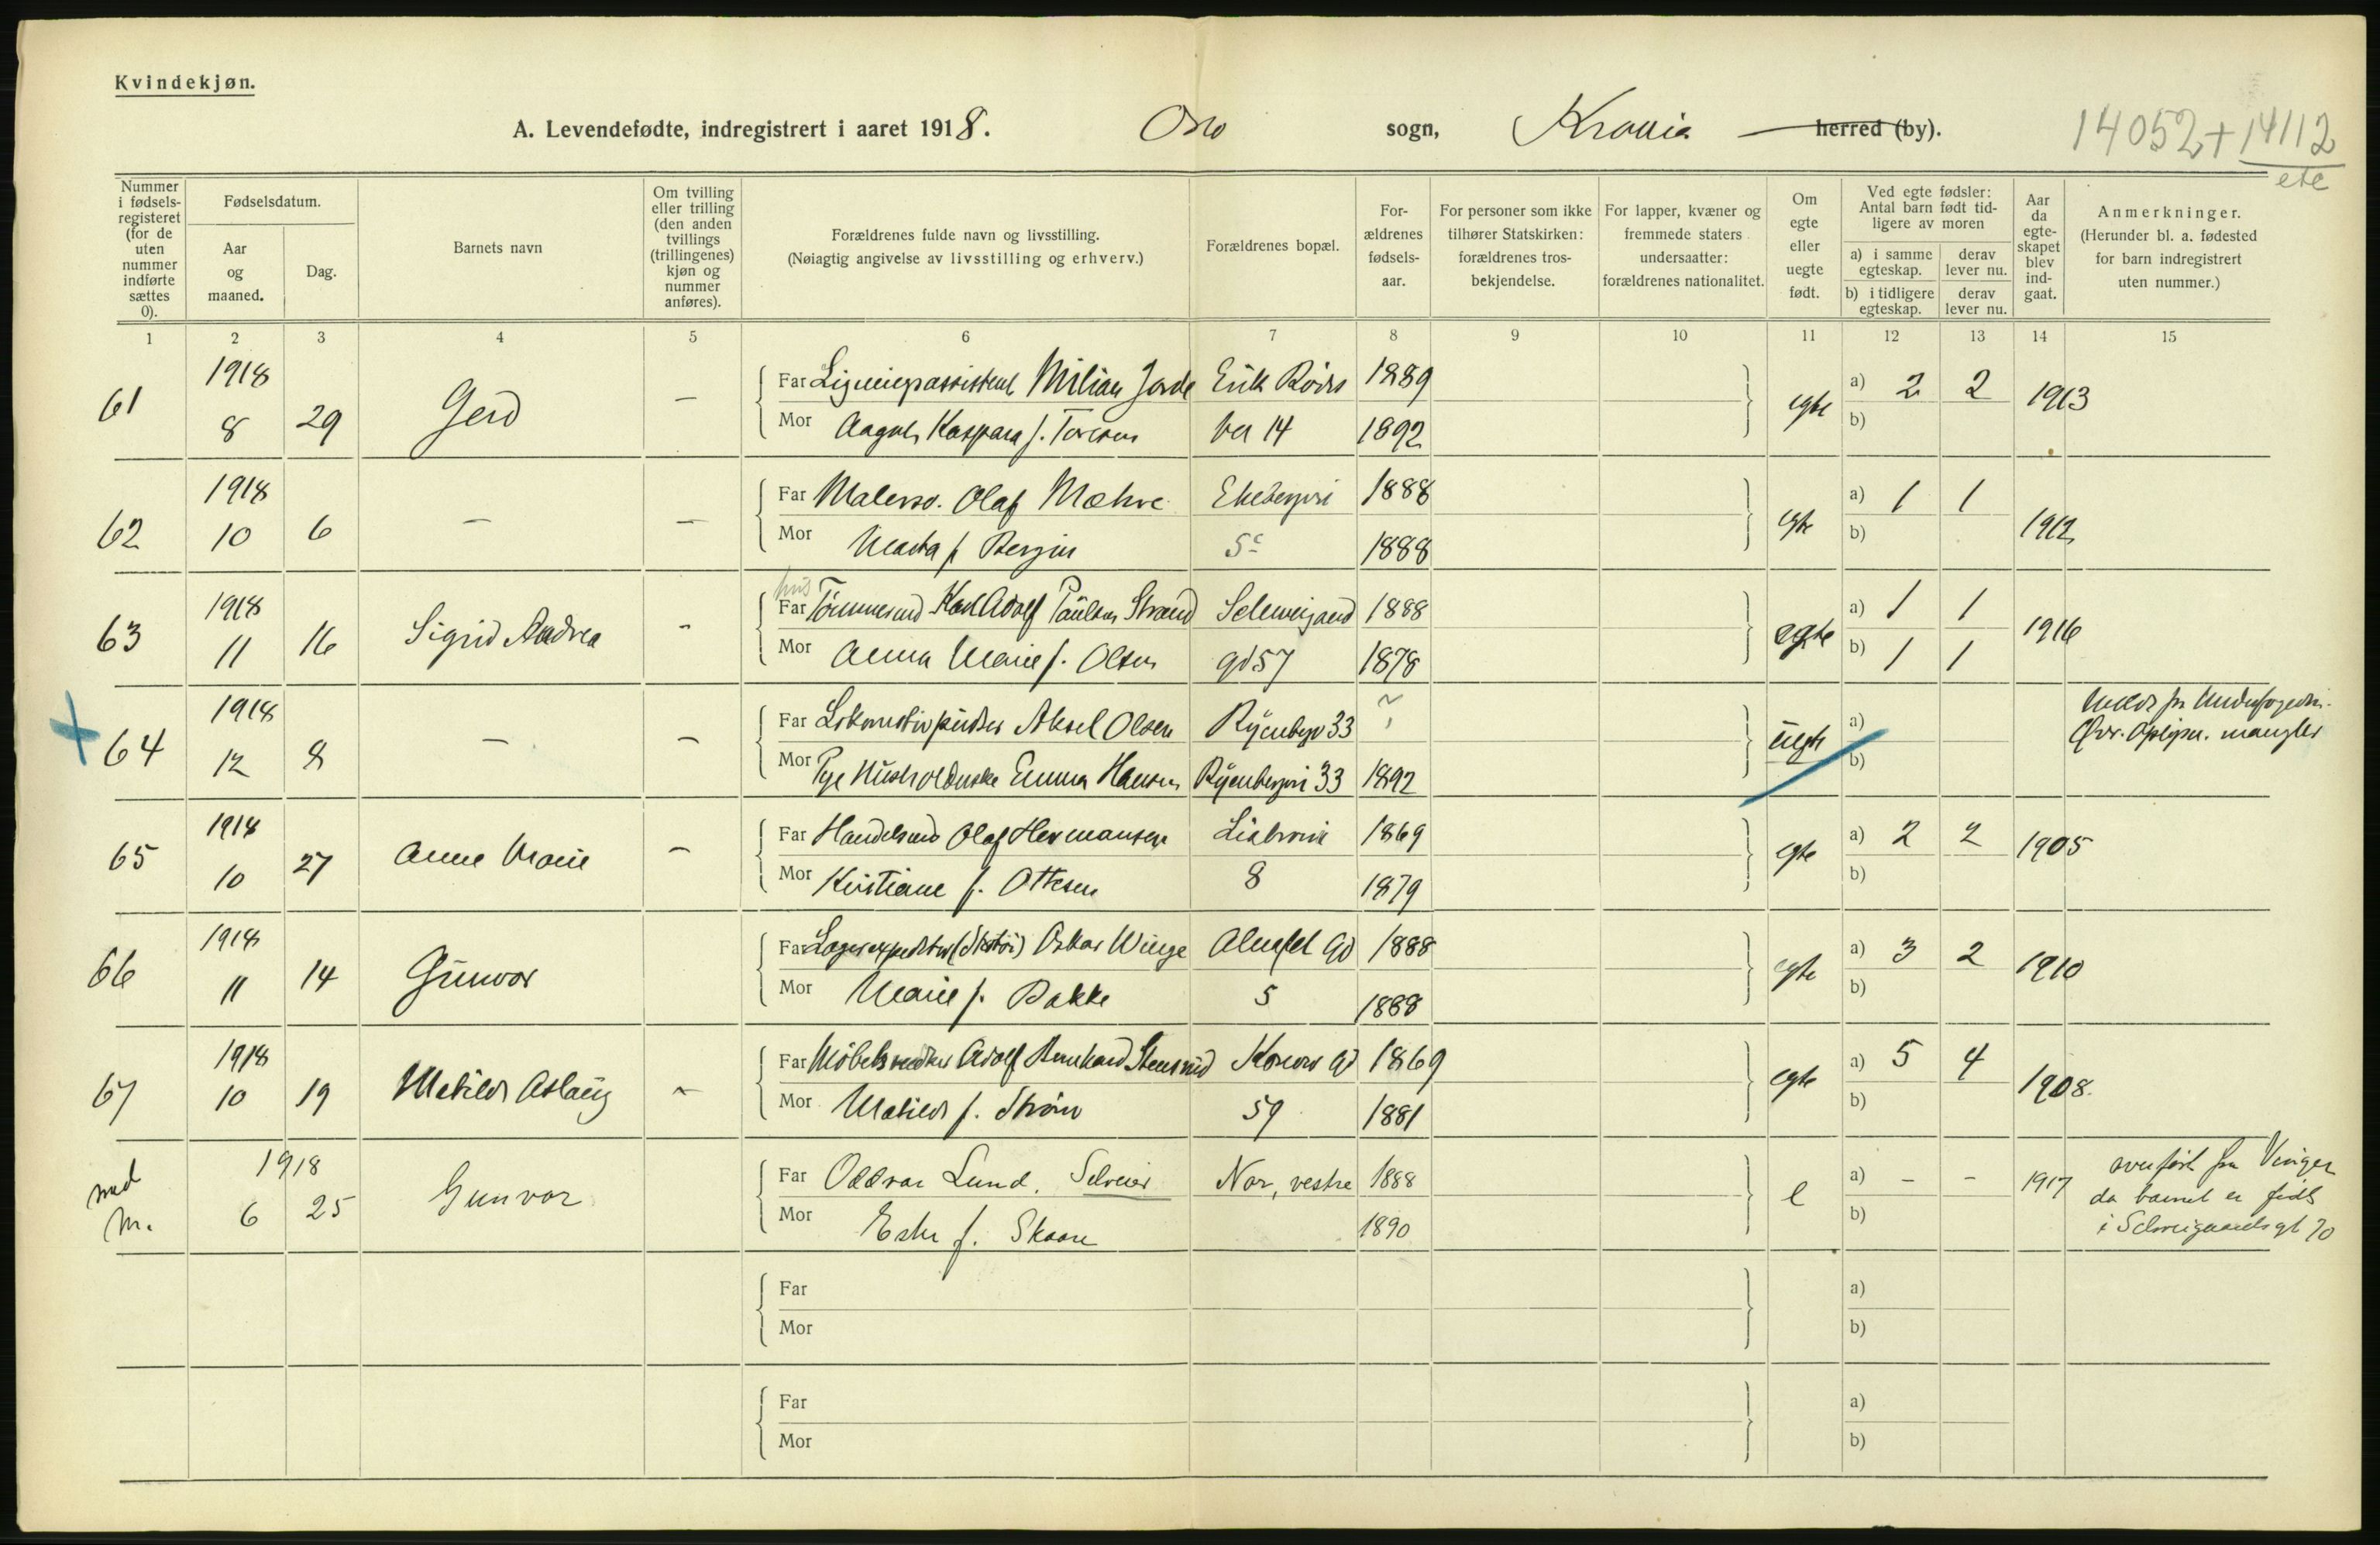 Kvindekjøn.
A. Levendefødte, indregistrert i aaret 1918. Oslo sogn, Kra̅nia herred (by).
14052+14112
ete
Nummer i fødsels-registeret (for de uten nummer indførte sættes 0).
Fødselsdatum.
Aar og maaned.
Dag.
Barnets navn
Om tvilling eller trilling (den anden tvillings (trillingenes) kjøn og nummer anføres).
Forældrenes fulde navn og livsstilling.
(Nøiagtig angivelse av livsstilling og erhverv.)
Forældrenes bopæl.
For-ældrenes fødsels-aar.
For personer som ikke tilhører Statskirken: forældrenes tros-bekjendelse.
For lapper, kvæner og fremmede staters undersaatter: forældrenes nationalitet.
Om egte eller uegte født.
Ved egte fødsler: Antal barn født tid-ligere av moren
a) i samme egteskap. derav lever nu.
b) i tidligere egteskap. derav lever nu.
Aar da egte-skapet blev ind-gaat.
Anmerkninger.
(Herunder bl. a. fødested for barn indregistrert uten nummer.)
1 2 3 4 5 6 7 8 9 10 11 12 13 14 15
61 1918 8 29 Gerd —
Far Ligningsassistent Milian Jorde Erik Bodds 1889
Mor Aagot Kaspara f. Toresen vei 14 1892
egte a) 2 2 1913
b)
62 1918 10 6 — —
Far Malersv. Olaf Mæhre Ekebergvei 1888
Mor Marta f. Bergin 5c 1888
egte a) 1 1 1912
b)
63 1918 11 16 Sigrid Andrea -
hus
Far Tømmermd Karl Adolf Paulsen Strand Schweigaard 1888
Mor Anna Marie f. Olsen gd 57 1878
egte a) 1 1 1916
b) 1 1
64 1918 12 8 — —
Far Lokomotivpudser Aksel Olsen Ryenbgv 33 ?
Mor Pge Husholderske Emma Hansen Ryenbergvei 33 1892
uegte a)
b)
Øvr. Oplysn. mangler
65 1918 10 27 Anne Marie —
Far Handelsmd Olaf Hermansen Liabrovei 1869
Mor Kristiane f. Ottesen 8 1879
egte a) 2 2 1905
b)
66 1918 11 14 Gunvor
Far Lagerexpeditør (Skotøi) Oskar Winge Alnafet Gd 1888
Mor Marie f. Bakke 5 1888
egte a) 3 2 1910
b)
67 1918 10 19 Matilde Aslaug -
Far Møbelsnedker Adolf Bernhard Stensrud Konows Gd 1869
Mor Matilde f. Strøm 59 1881
egte a) 5 4 1908.
b)
med m. 1918 6 25 Gunvor
Far Oddvar Lund. Selveier Nor, vestre 1888
Mor Ester f. Skaare 1890
e a) - - 1917
b)
overført fra Vinger
da barnet er født
i Schweigaardsgt 70
Far
Mor
a)
b)
Far
Mor
a)
b)